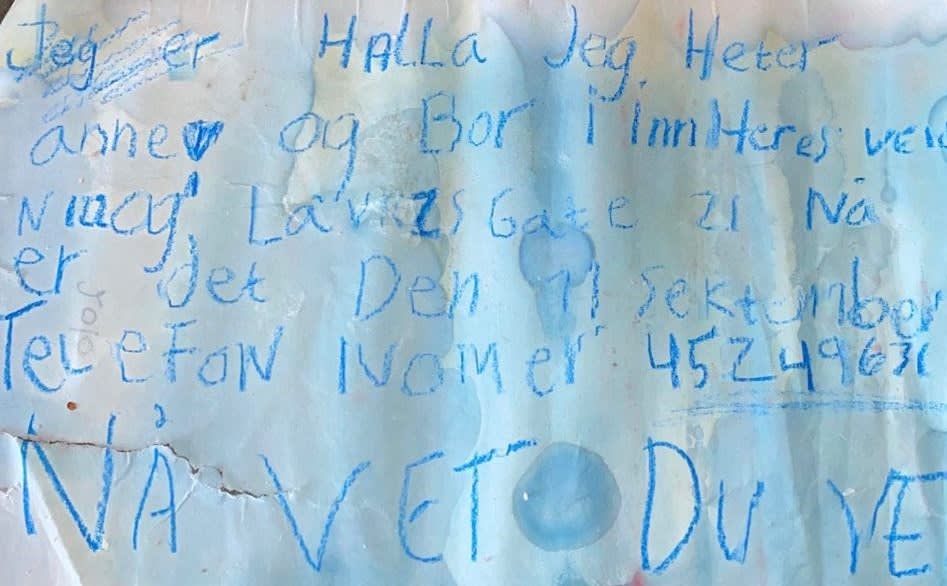 Jeg er HALLa Jeg Heter
anne og Bor i InnHeres veie
Lavrzs Gate 21 Nå
er det Den 11 Sektember
TeLeFoN NoMer 4524963
NÅ VET DU VE